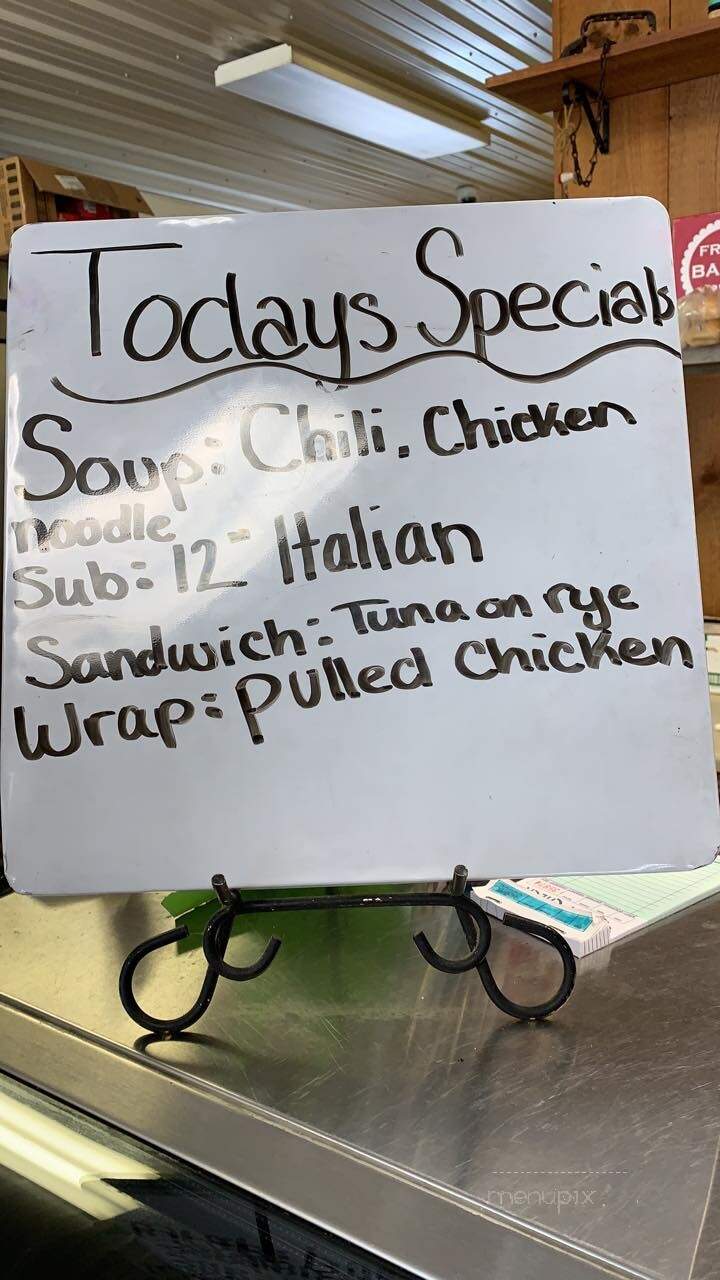 Todays Specials
Soup: Chili, Chicken
noodle
Sub: 12" Italian
Sandwich: Tuna on rye
Wrap: pulled chicken
FR
BA
menupix